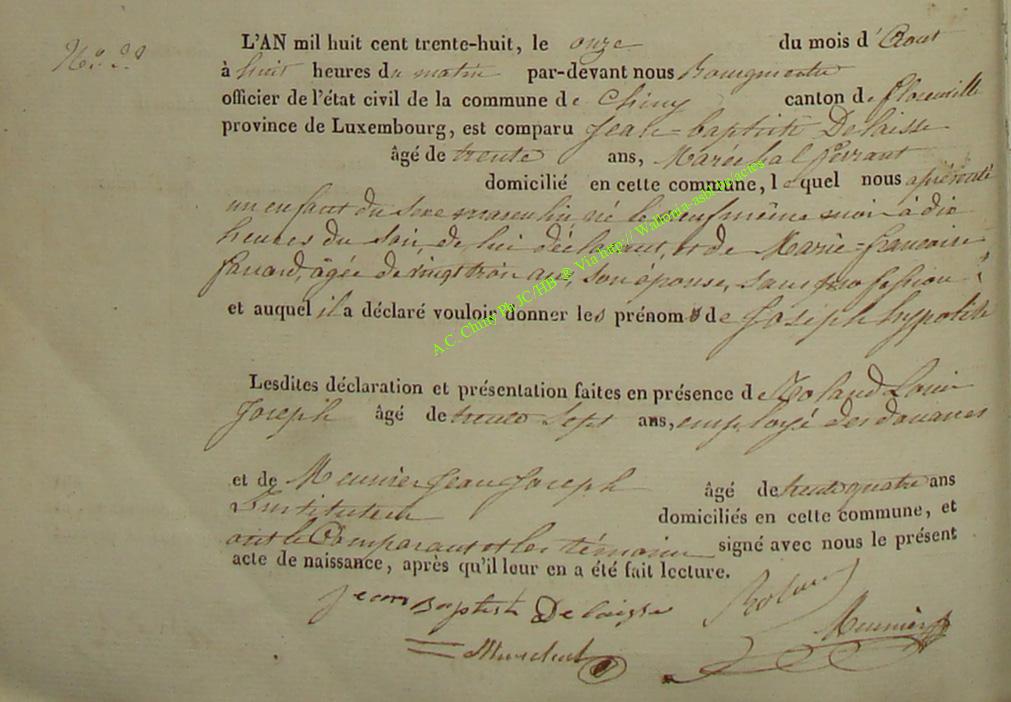 L'AN mil huit cent trente-huit, le onze du mois d'Aout
à huit heures du matin par-devant nous Bourgmestre
officier de l'état civil de la commune de Chiny canton de florenville
province de Luxembourg, est comparu Jean-baptiste Delaisse
âgé de trente ans, Maréchal ferrant
domicilié en cette commune, lequel nous a présenté
un enfant du sexe masculin né le neuf même mois à dix
heures du soir, de lui déclarant, et de Marie-francoise
âgée de vingt trois ans, son épouse, sans profession
et auquel il a déclaré vouloir donner les prénoms de Joseph hypolite
Lesdites déclaration et présentation faites en présence de Roland Louis
Joseph âgé de trente sept ans, employé des douanes
et de Meunier Jean Joseph âgé de trente quatre ans
Instituteur domiciliés en cette commune, et
ont le Comparant et les témoins signé avec nous le présent
acte de naissance, après qu'il leur en a été fait lecture.
Jean Baptiste Delaisse Roland
Meunier
A.C. Chiny Ph JC/HB @ Via http:// Wallonia-asbl.org/actes